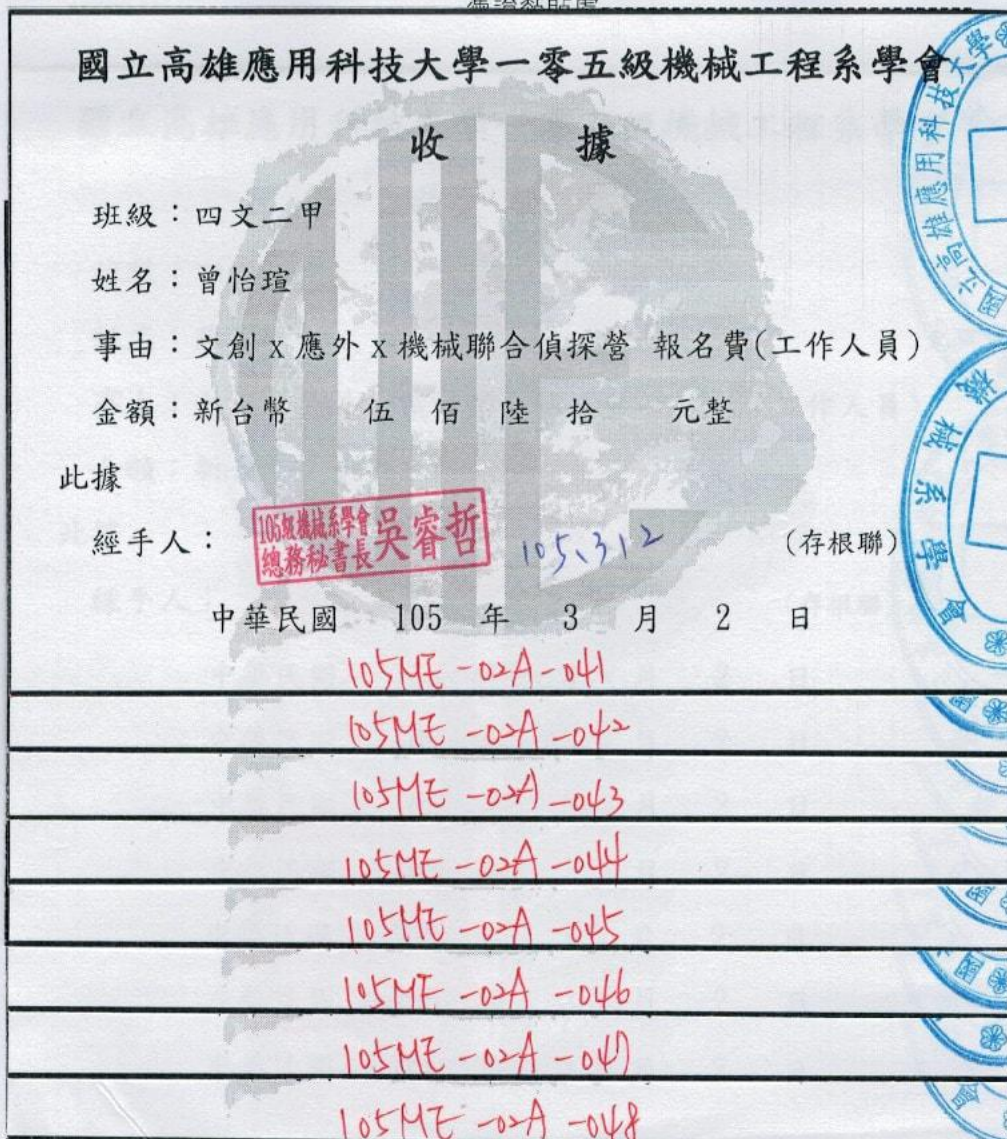 憑證黏貼處
國立高雄應用科技大學一零五級機械工程系學會
收 據
班級：四文二甲
姓名：曾怡瑄
事由：文創 x 應外 x 機械聯合偵探營 報名費(工作人員)
金額：新台幣 伍 佰 陸 拾 元整
此據
經手人：
105級機械系學會
總務秘書長
吳睿哲
105、3、2
(存根聯)
中華民國 105 年 3 月 2 日
國立高雄應用科技大學
機械系學會
105ME-02A-041
105ME-02A-042
105ME-02A-043
105ME-02A-044
105ME-02A-045
105ME-02A-046
105ME-02A-047
105ME-02A-048